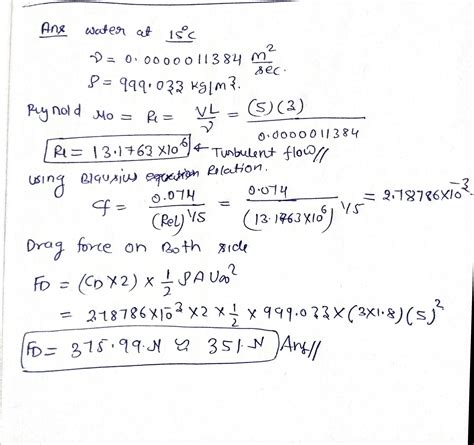 Ans water at 15°C
ν = 0.0000011384 m²/sec.
ρ = 999.033 kg/m³.
Reynold No = Re = VL/ν = (5)(3)/0.0000011384
Re = 13.1763 X10⁶ ← Turbulent flow//
using Blausius equation Relation.
Cf = 0.074/(ReL)^1/5 = 0.074/(13.1763X10⁶)^1/5 = 2.78786X10⁻³
Drag force on Both side
FD = (CD X2) X 1/2 ρAU∞²
= 2.78786X10⁻³ X2 X 1/2 X 999.033 X(3X1.8)(5)²
FD = 375.99.N ≈ 351.N Ans//